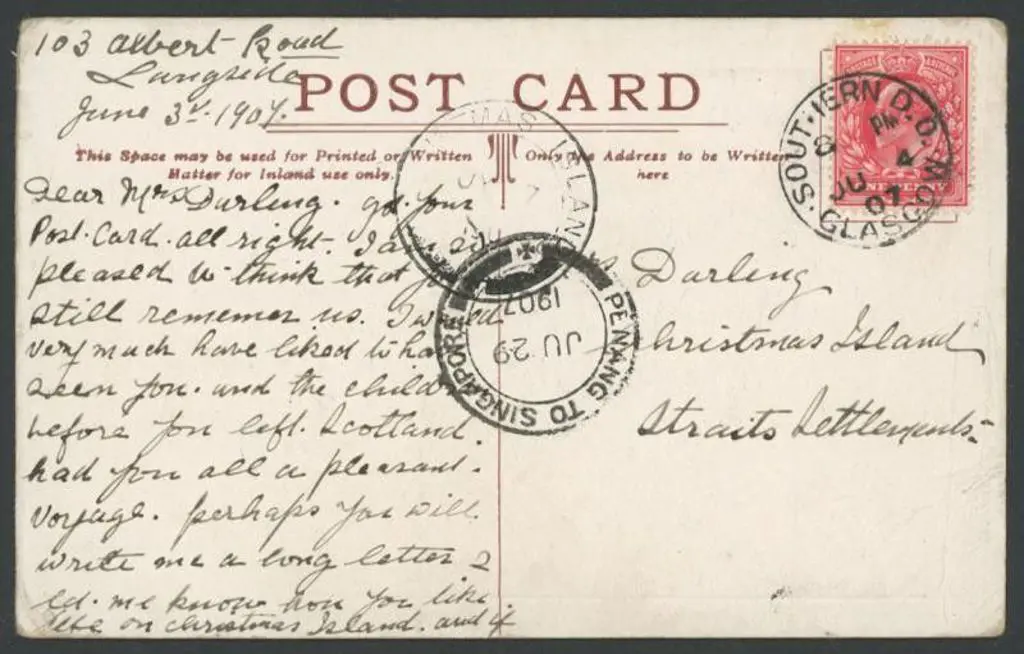 103 Albert Road
Langside
June 3d. 1907.
POST CARD
This Space may be used for Printed or Written
Matter for Inland use only.
Only the Address to be Written
here
Dear Mrs Darling. got your
Post. Card. all right. I a
pleased to think that yo
still rememer us. I would
very much have liked to ha
seen you. and the child
before you left. Scotland.
had you all a pleasant.
voyage. perhaps you will.
write me a long letter &
let. me know how you like
life on christmas Island. and if
s Darling
Christmas Island
Straits Settlements
SOUTHERN D.O. GLASGOW
8 PM
JU 4
07
ONE PENNY
CHRISTMAS ISLAND
PENANG TO SINGAPORE
JU 29
1907